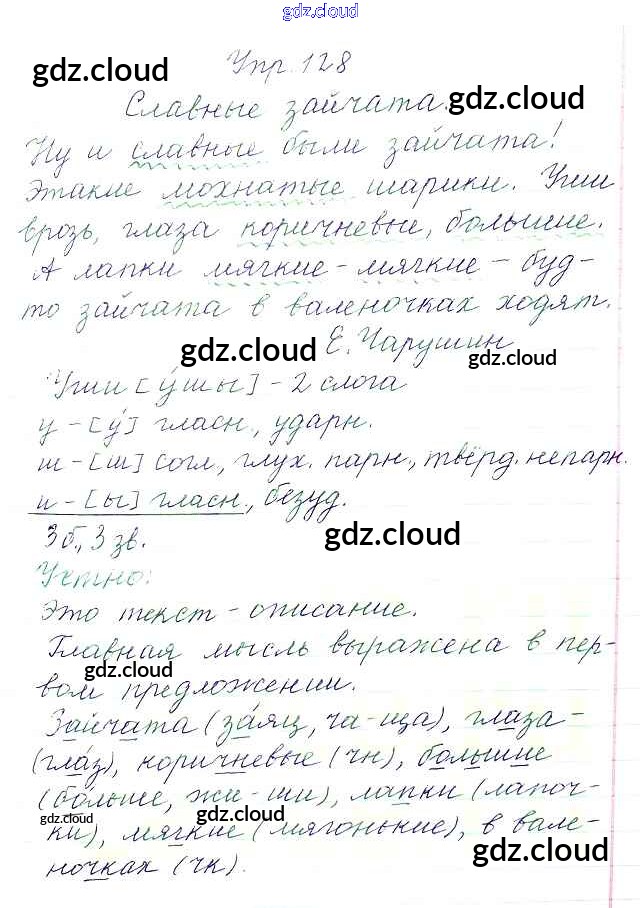 gdz.cloud
Упр. 128
gdz.cloud
Славные зайчата.
gdz.cloud
Ну и славные были зайчата!
Этакие мохнатые шарики. Уши
врозь, глаза коричневые, большие.
А лапки мягкие-мягкие – буд-
то зайчата в валеночках ходят.
gdz.cloud Е. Чарушин gdz.cloud
Уши [у́шы] - 2 слога
у - [у́] гласн., ударн.
ш - [ш] согл., глух. парн., твёрд. непарн.
и - [ы] гласн., безуд.
3 б., 3 зв.
gdz.cloud
Устно:
Это текст - описание.
Главная мысль выражена в пер-
gdz.cloud
вом предложении.
Зайчата (за́яц, ча-ща), глаза -
(гла́з), коричневые (чн), большие
(бо́льше, жи-ши), лапки (лапоч-
gdz.cloud gdz.cloud
ки), мягкие (мягонькие), в вале-
gdz.cloud
ночках (чк).